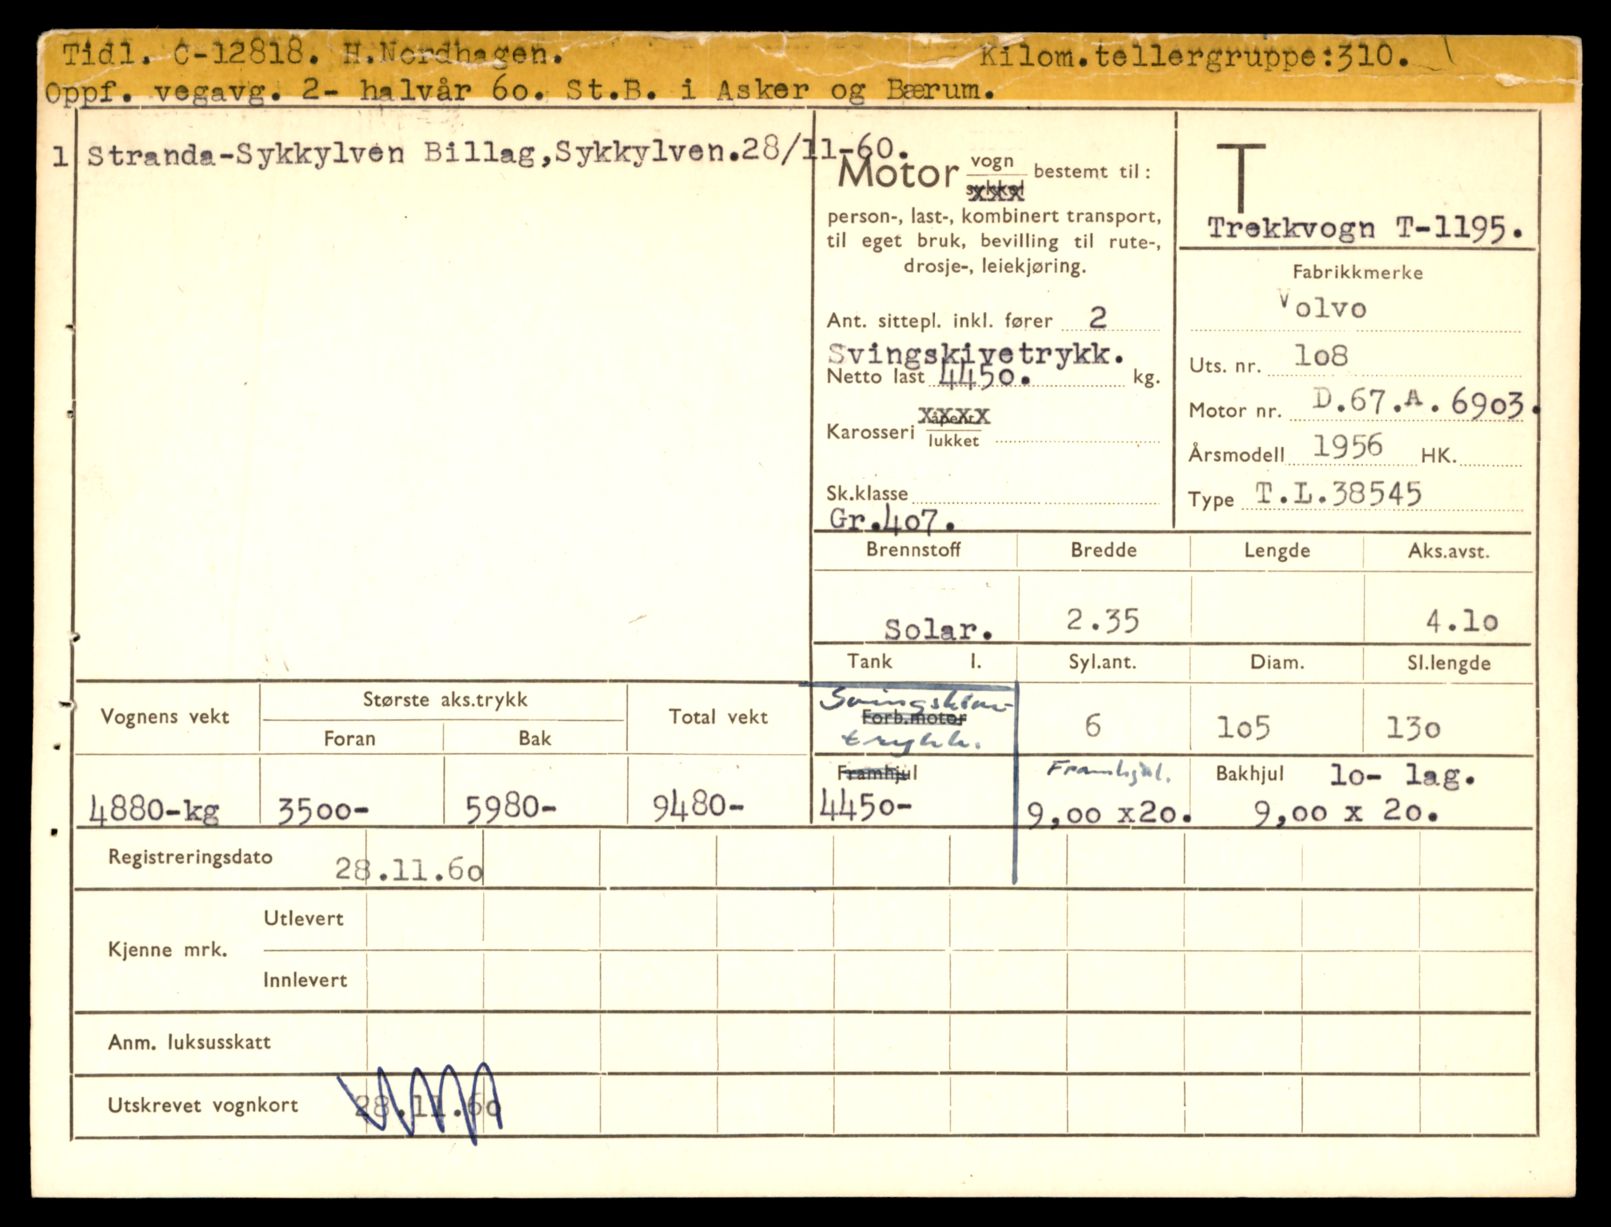 Tidl. C-12818. H.Nordhagen. Kilom.tellergruppe:310.
Oppf. vegavg. 2- halvår 60. St.B. i Asker og Bærum.
1 Stranda-Sykkylven Billag,Sykkylven.28/11-60.
Motor vogn
sykkel bestemt til:
person-, last-, kombinert transport,
til eget bruk, bevilling til rute-,
drosje-, leiekjøring.
Ant. sittepl. inkl. fører 2
Svingskivetrykk.
Netto last 4450. kg.
Karosseri åpent
lukket
Sk.klasse
Gr.407.
T
Trekkvogn T-1195.
Fabrikkmerke
Volvo
Uts. nr. 108
Motor nr. D.67.A.6903.
Årsmodell 1956 HK.
Type T.L.38545
Brennstoff Bredde Lengde Aks.avst.
Solar. 2.35 4.10
Tank l. Syl.ant. Diam. Sl.lengde
Svingskive-
Forb.motor
trykk. 6 105 130
Vognens vekt Største aks.trykk Total vekt
Foran Bak
Framhjul Framhjul. Bakhjul 10- lag.
4880-kg 3500- 5980- 9480- 4450- 9,00 x20. 9,00 x 20.
Registreringsdato 28.11.60
Utlevert
Kjenne mrk.
Innlevert
Anm. luksusskatt
Utskrevet vognkort 28.11.60